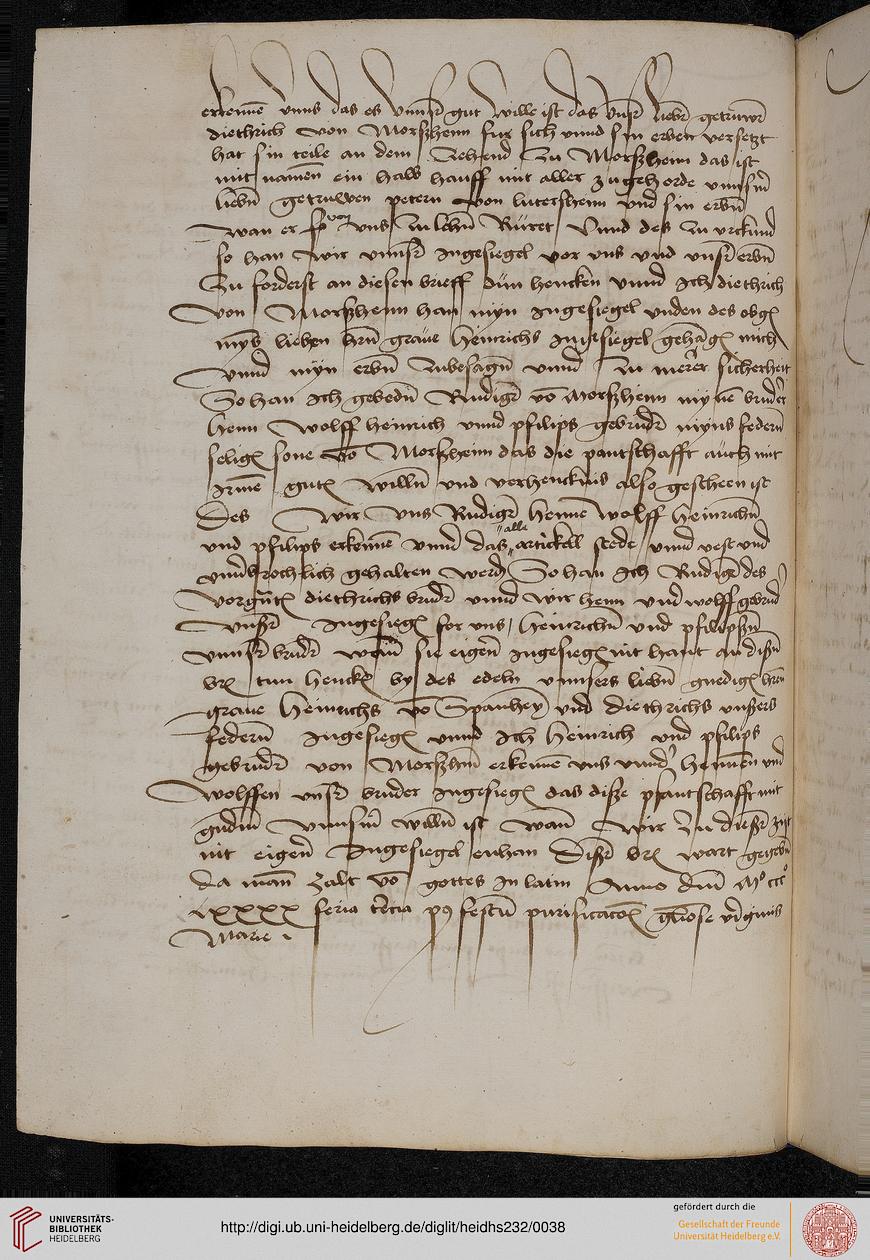 erkennē vnns das es vnnsʳ gut wille ist das vnsʳ liebʳ getruwʳ
diethrich von Morszheim fur sich vnnd sin erben versetzt
hat sin teile an dem Zehend zu Morszheim das ist
mit namen ein halb hauff mit aller zugehorde vnnsm̄
liebn̄ getruwen petern von lutersheim vnd sin erbn̄
wan er von vns zu lehn̄ Ruret Vnnd des zu vrkund
so han wir vnnsʳ Ingesiegel vor vns vnd vnsʳ erbn̄
Zu forderst an diesen brieff dūn hencken vnnd Ich diethrich
von Morszheim han myn Ingesiegel vnden des obgn̄
myns lieben hrn̄ graue Heinrichs Ingesiegel gehāgn̄ mich
vnnd myn erbn̄ zubesagn̄ vnnd Zu merer sicherheit
So han Ich gebedn̄ Rudigʳ vō Morszheim mynē brudʳ
Henn Wolff Heinrich vnnd pfilips gebrudʳ myns federn̄
selign̄ sone vō Morszheim das die pantschafft auch mit
Irnē gutn̄ willn̄ vnd verhencknis also gescheen ist
Des Wir vns Rudigʳ Hennē Wolff Heinrichn̄
vnd pfilips erkennē vnnd das alle artickell stede vnnd vest vnd
vnuʳbrochlich gehalten werdn̄ So han Ich Rudigʳ des
vorgn̄tn̄ diethrichs brudʳ vnnd wir henn vnd wolff gebrudʳ
vnsʳ Ingesiegn̄ for vns / Heinrichn̄ vnd pfilipsn̄
vnnsʳ brudʳ wann̄ sie eigen̄ Ingesiegn̄ nit hant an disn̄
brn̄ tun henckn̄ by des edeln vnnsers liebn̄ gnedign̄ hrn̄
graue Heinrichs vō Spanheyn̄ vnd diethrichs vnsers
federn̄ Ingesiegn̄ vnnd Ich Heinrich vnd pfilips
gebrudʳ von Morszhm̄ erkennē vns vnndʳ Hennen vnd
Wolffen vnsʳ bruder Ingesiegn̄ das disze pfantschafft mit
gudm̄ vnnsm̄ willn̄ ist wan̄ Wir zu dieszʳ zijt
nit eigen̄ Ingesiegel enhan Disʳ brn̄ wart gegebn̄
da man̄ zalt vō gottes In latin Anno dn̄i Mº cccº
lxxxx feria t'cia pꝰ festū purificacōn̄ gl'iose v'ginis
Marie
UNIVERSITÄTS-
BIBLIOTHEK
HEIDELBERG
http://digi.ub.uni-heidelberg.de/diglit/heidhs232/0038
gefördert durch die
Gesellschaft der Freunde
Universität Heidelberg e.V.